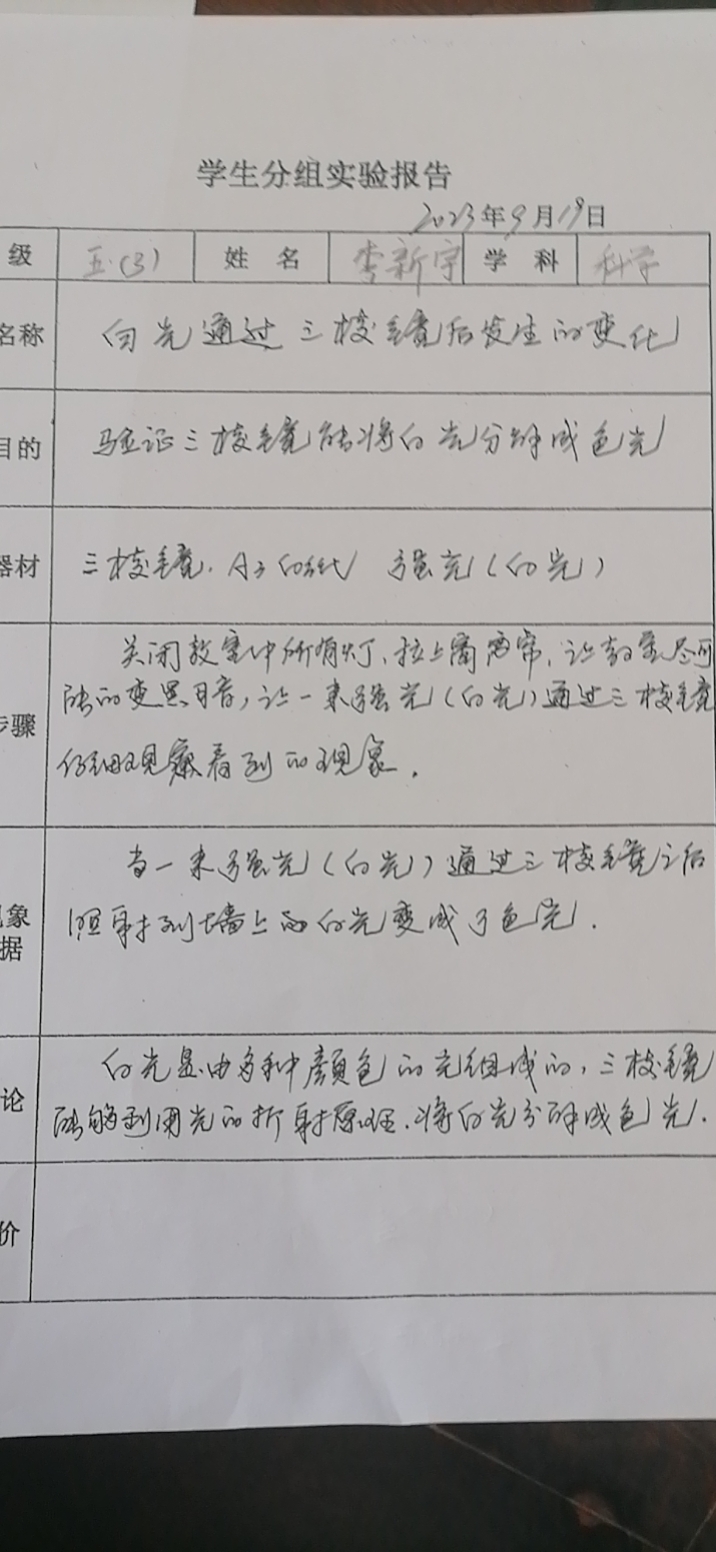 学生分组实验报告
2023年9月19日
级 五(3) 姓名 李新宇 学科 科学
名称 白光通过三棱镜后发生的变化
目的 验证三棱镜能将白光分解成色光
器材 三棱镜. A4白纸 强光(白光)
关闭教室中所有灯,拉上窗帘,让教室尽可
步骤 能的变黑暗,让一束强光(白光)通过三棱镜
仔细观察看到的现象.
当一束强光(白光)通过三棱镜之后
现象 照射到墙上的白光变成了色光.
据
白光是由多种颜色的光组成的,三棱镜
论 能够利用光的折射原理.将白光分解成色光.
价